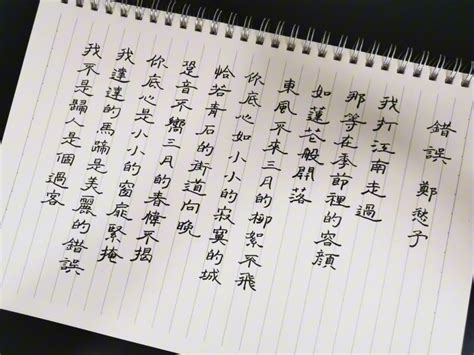 錯誤 鄭愁予
我打江南走過
那等在季節裡的容顏
如蓮花般開落
東風不來三月的柳絮不飛
你底心如小小的寂寞的城
恰若青石的街道向晚
跫音不響三月的春帷不揭
你底心是小小的窗扉緊掩
我達達的馬蹄是美麗的錯誤
我不是歸人是個過客